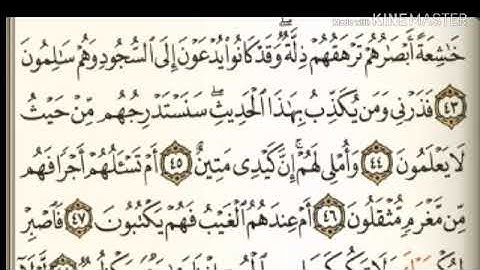 Made with KINEMASTER
خَٰشِعَةً أَبْصَٰرُهُمْ تَرْهَقُهُمْ ذِلَّةٌ ۖ وَقَدْ كَانُوا۟ يُدْعَوْنَ إِلَى ٱلسُّجُودِ وَهُمْ سَٰلِمُونَ
﴿٤٣﴾ فَذَرْنِى وَمَن يُكَذِّبُ بِهَٰذَا ٱلْحَدِيثِ ۖ سَنَسْتَدْرِجُهُم مِّنْ حَيْثُ
لَا يَعْلَمُونَ ﴿٤٤﴾ وَأُمْلِى لَهُمْ ۚ إِنَّ كَيْدِى مَتِينٌ ﴿٤٥﴾ أَمْ تَسْـَٔلُهُمْ أَجْرًا فَهُم
مِّن مَّغْرَمٍ مُّثْقَلُونَ ﴿٤٦﴾ أَمْ عِندَهُمُ ٱلْغَيْبُ فَهُمْ يَكْتُبُونَ ﴿٤٧﴾ فَٱصْبِرْ